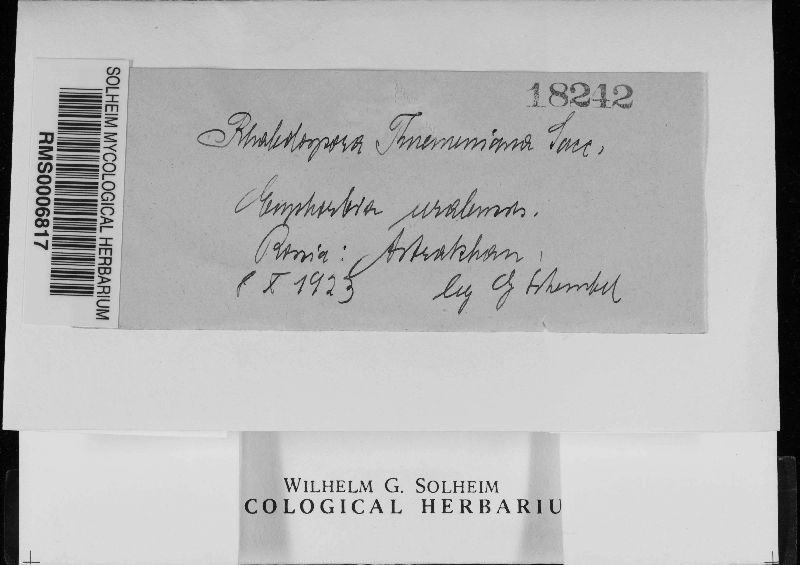 18242
SOLHEIM MYCOLOGICAL HERBARIUM
RMS0006817
Rhabdospora Thuemeniana Sacc.
Euphorbia uralensis.
Rossia: Astrakhan,
8 X 1923 leg
WILHELM G. SOLHEIM
COLOGICAL HERBARIU